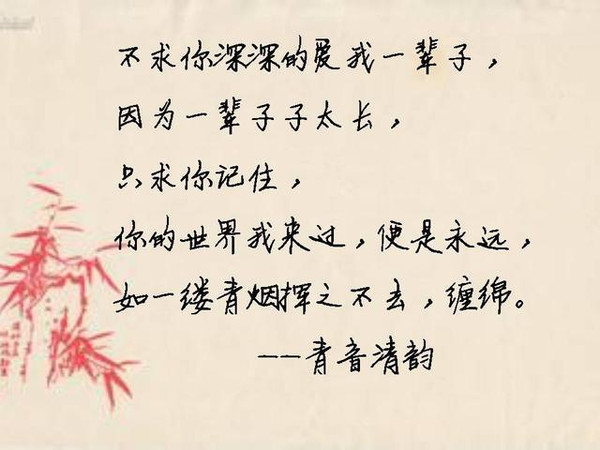 不求你深深的爱我一辈子，
因为一辈子子太长，
只求你记住，
你的世界我来过，便是永远，
如一缕青烟挥之不去，缠绵。
---青音清韵